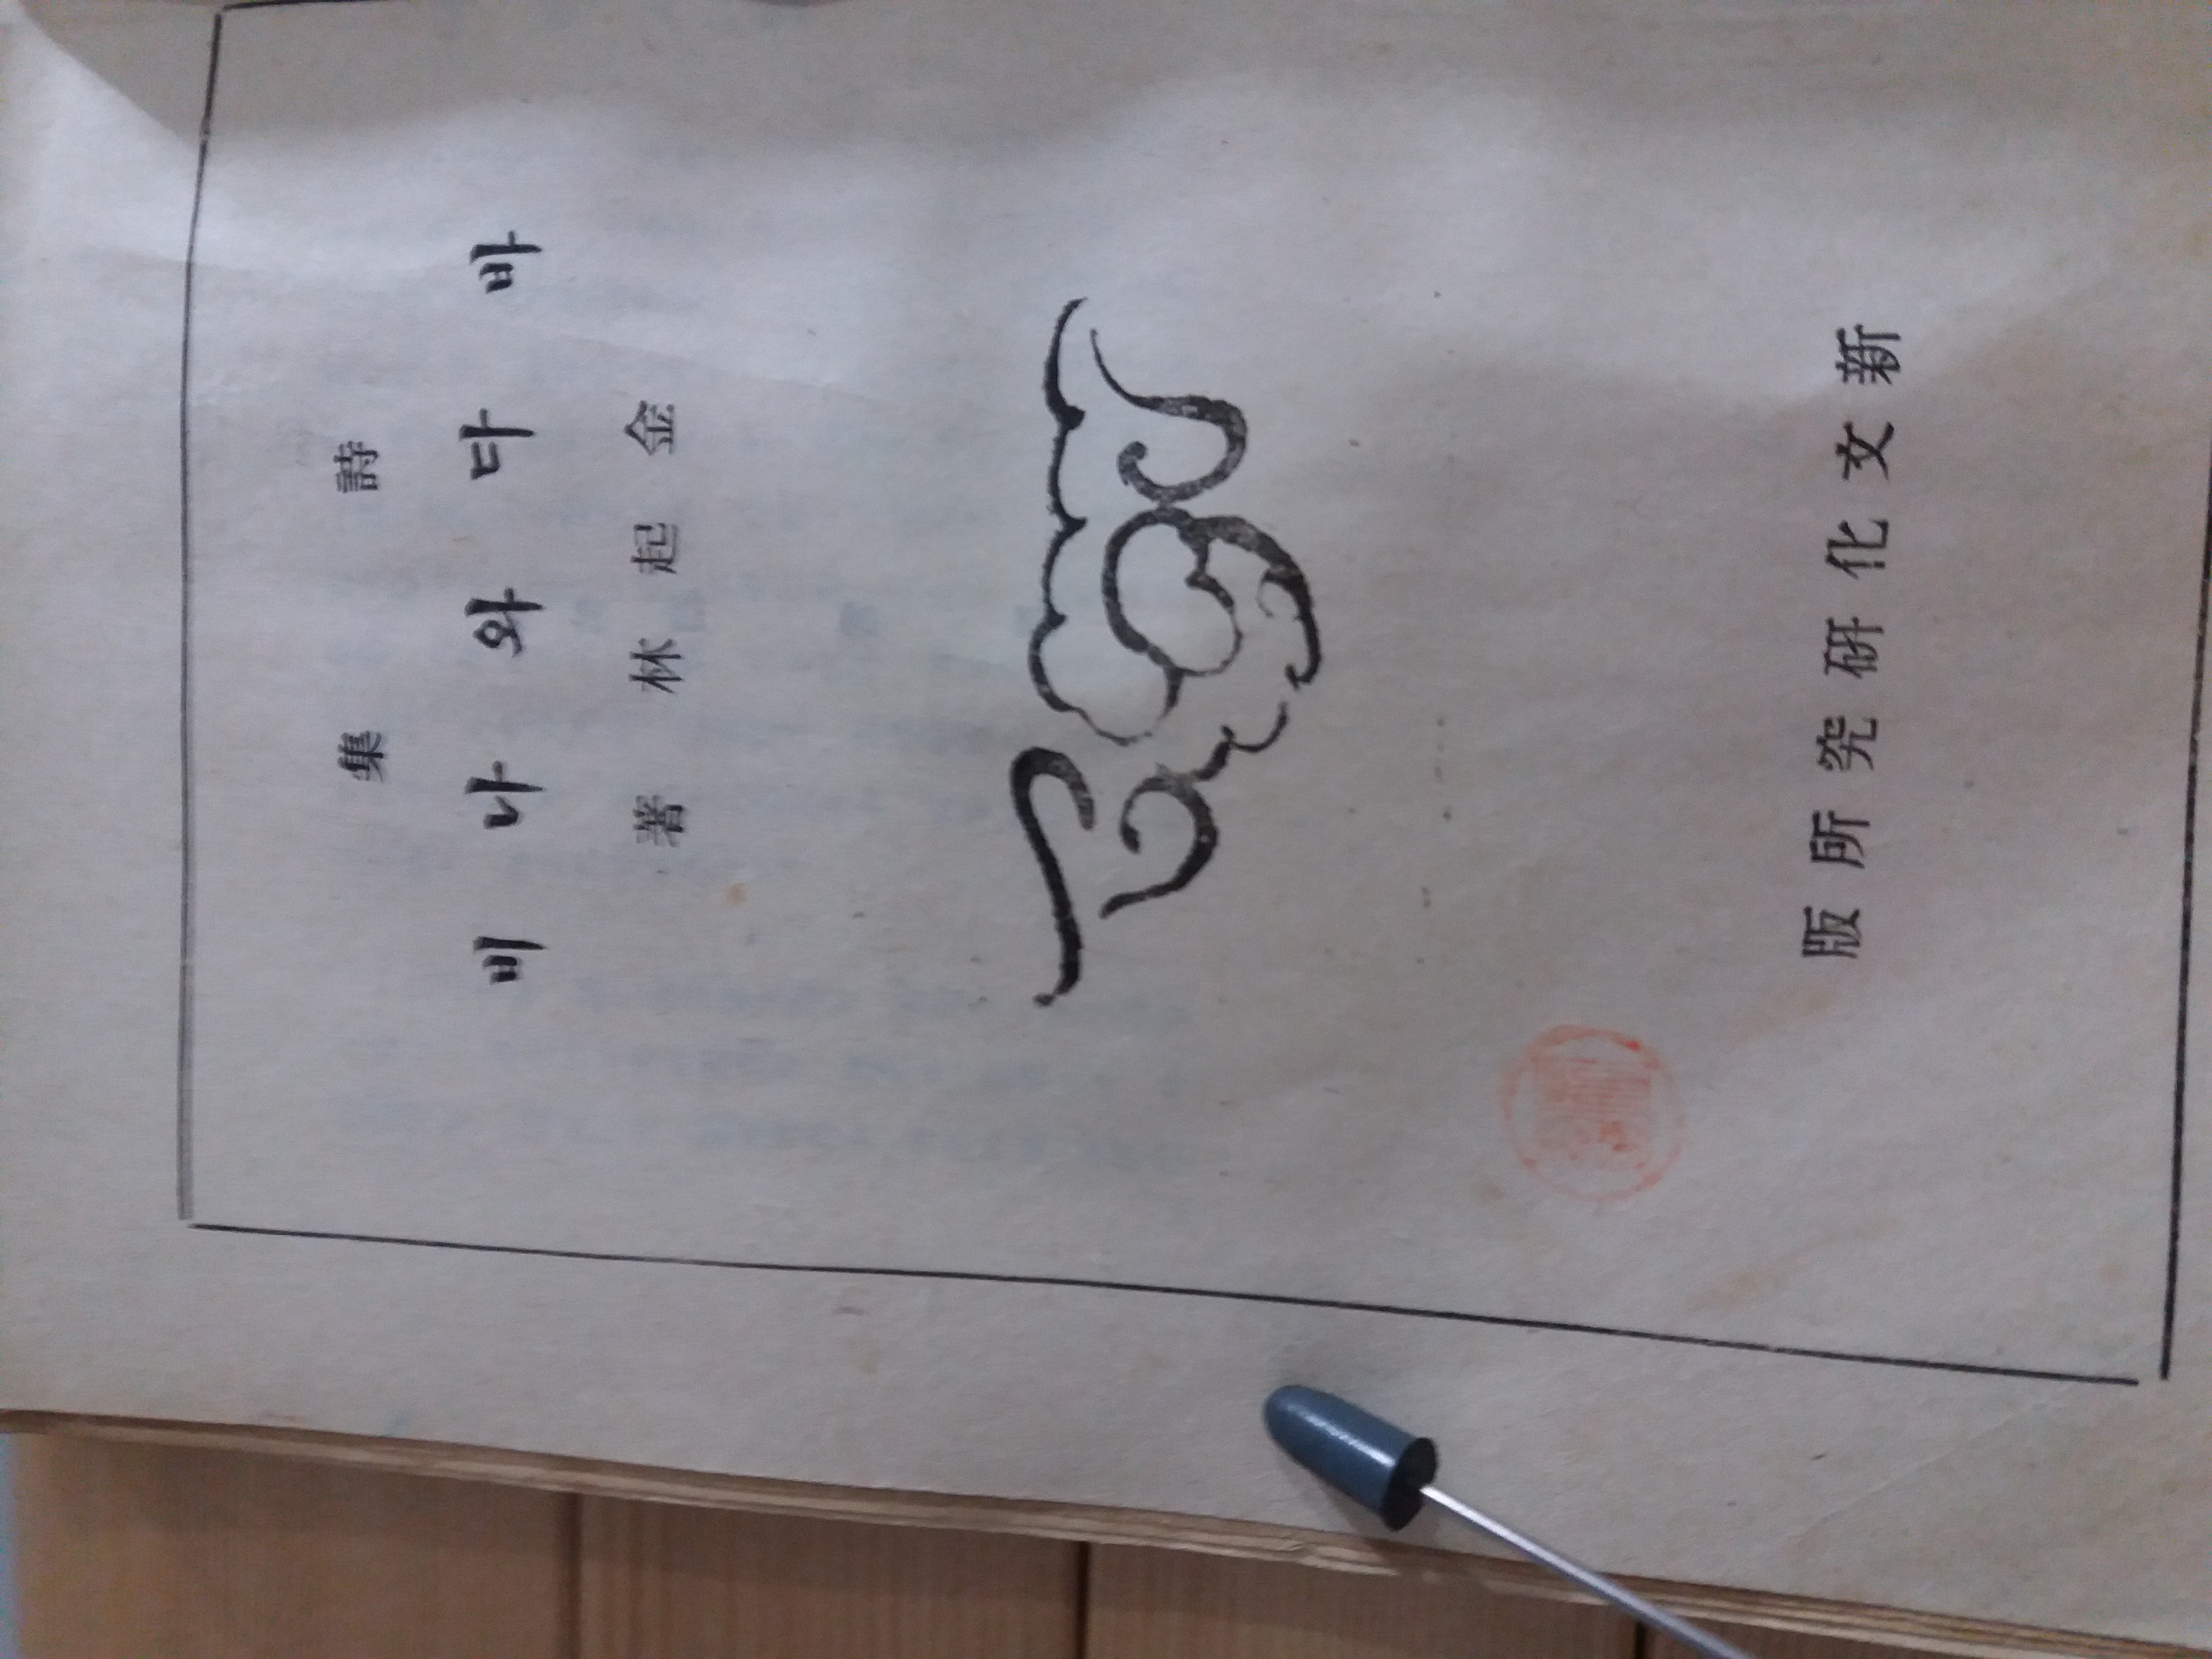 詩集
바다와나비
金起林著
新文化研究所版